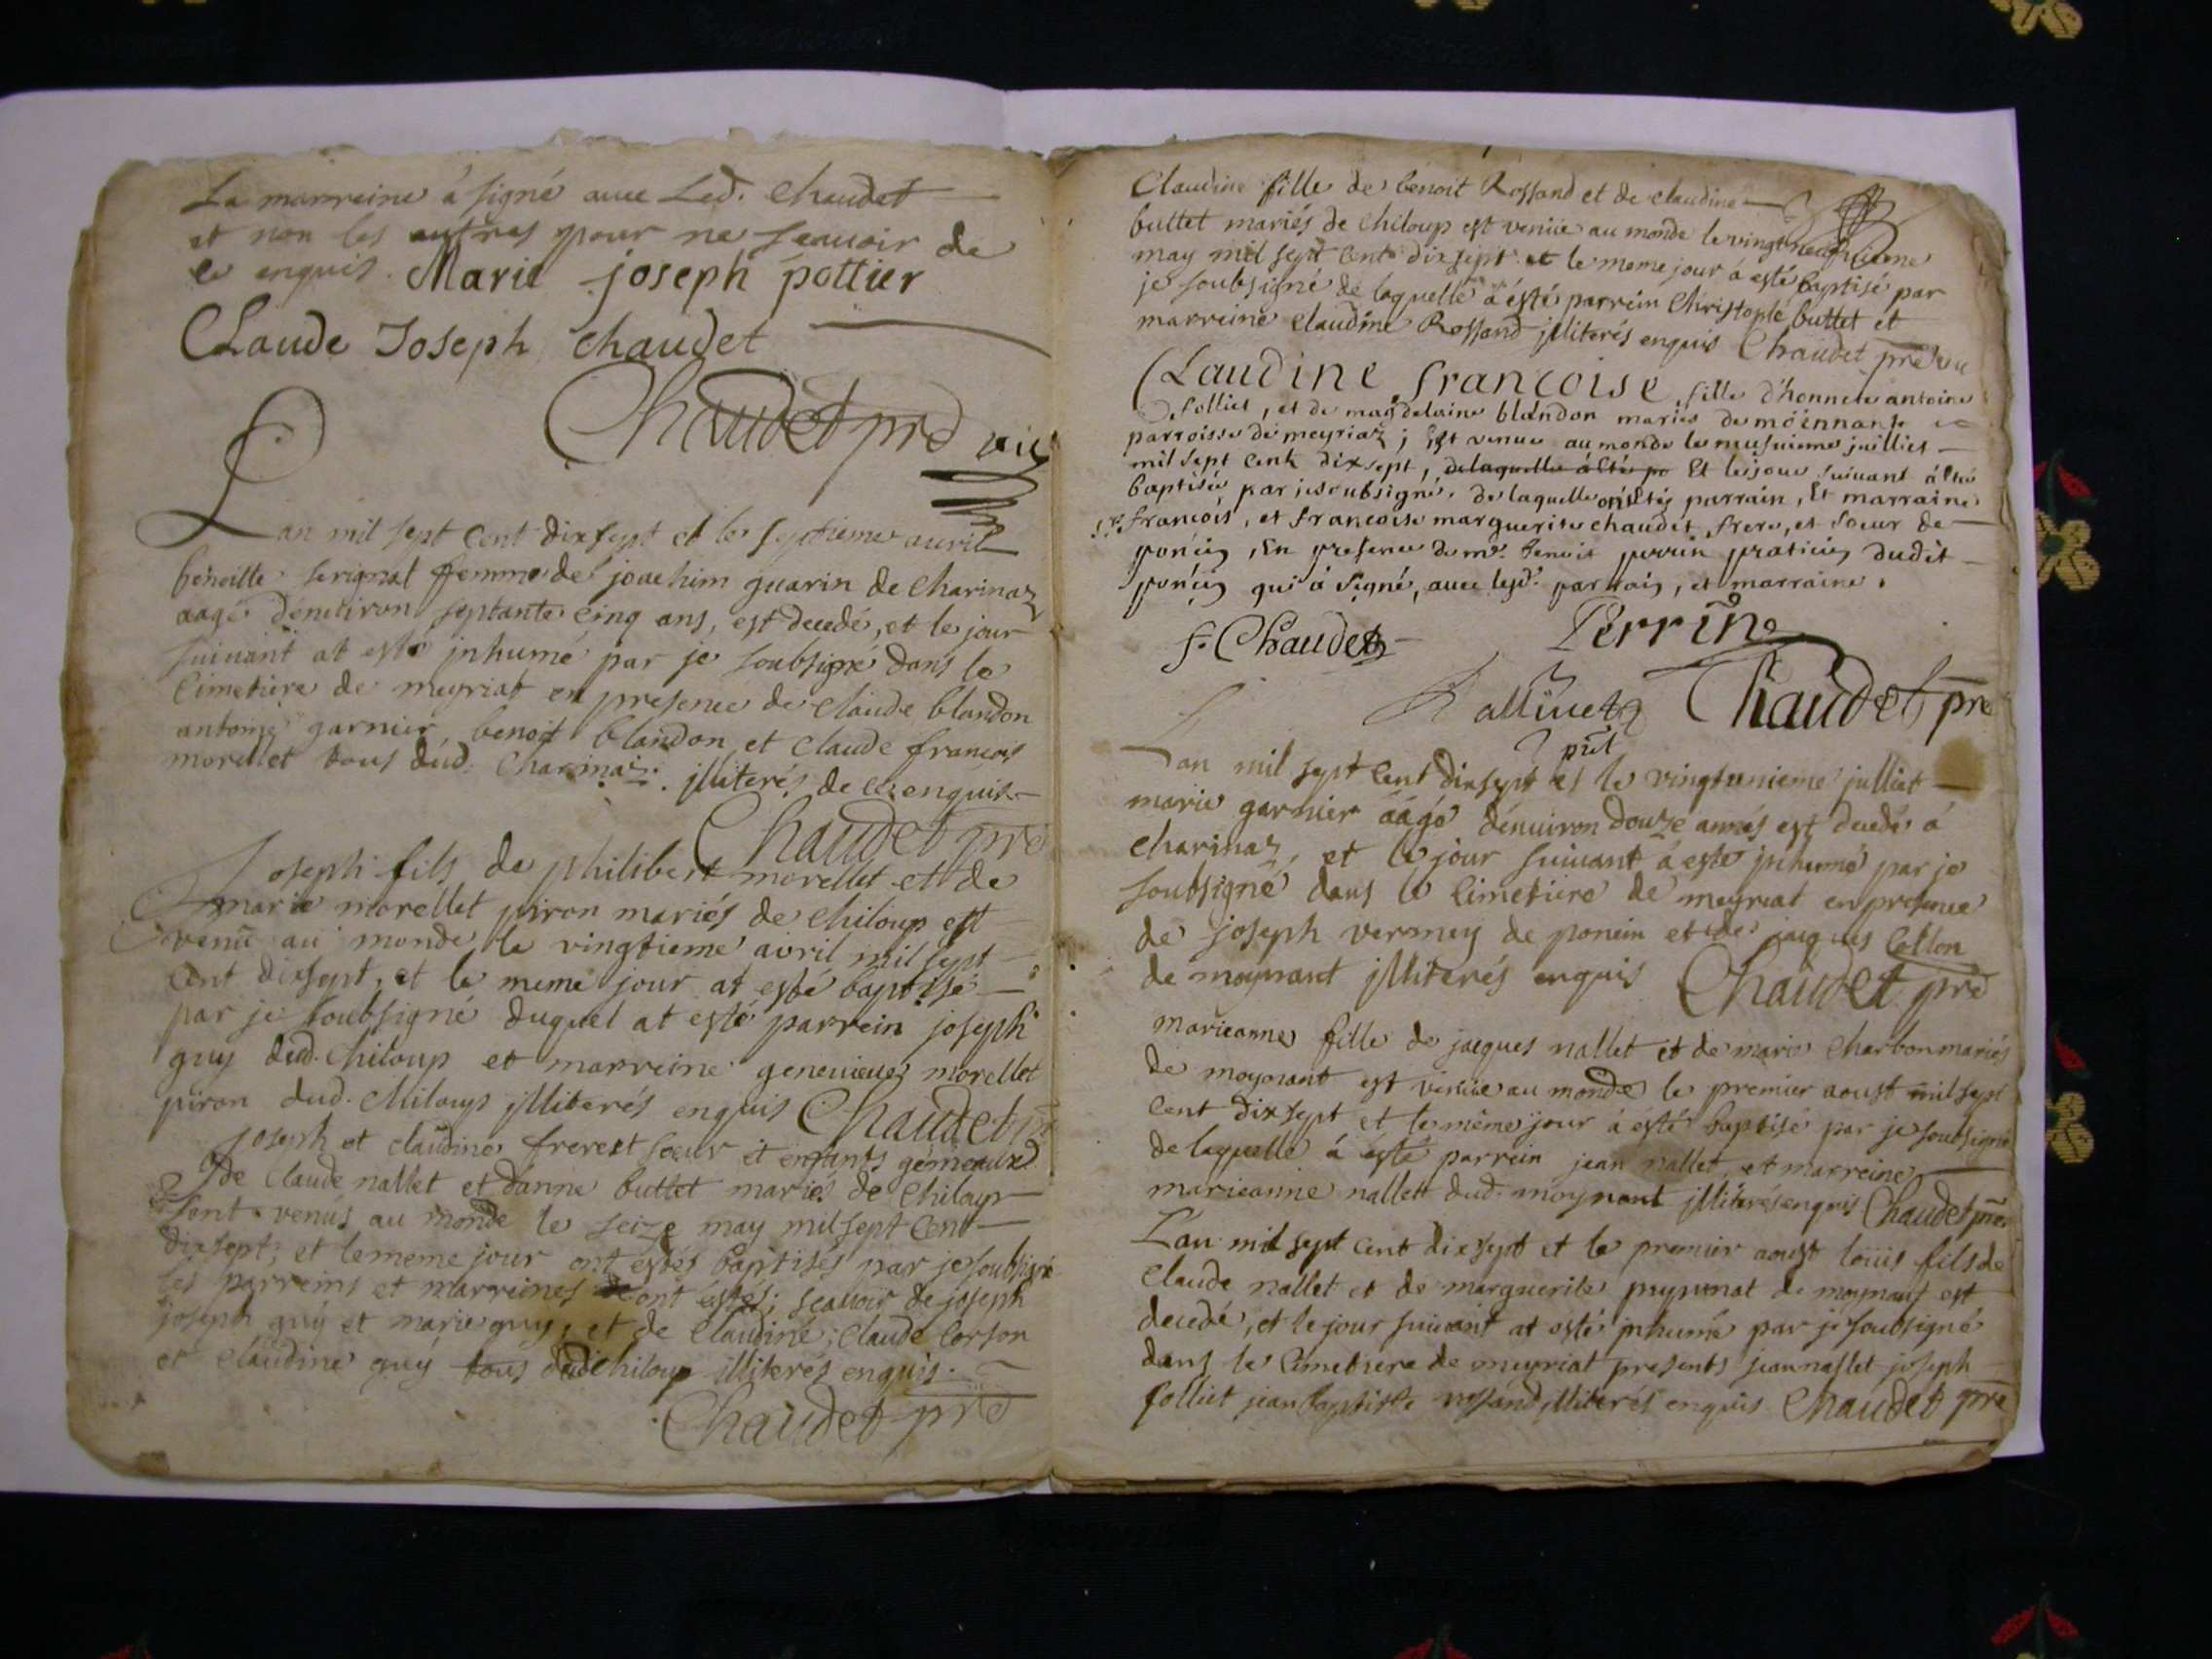 La marreine á signé avec Led. Chaudet
et non les autres pour ne scauoir de
ce enquis. Marie joseph pottier
CLaude Joseph chaudet
Chaudet pre vic
Lan mil sept cent dixsept et le septieme auril
benoitte serignat femme de joachim guarin de Charinaz
aagé dénuiron septante cinq ans, est decedé, et le jour
suiuant at esté jnhumé par je soubsigné dans le
Cimetiere de meyriat en presence de Claude blandon
antoine garnier, benoit blandon et claude francois
morellet tous dud. Charinaz. jlliterés de ce enquis
Chaudet pre
Joseph fils de philibert morellet et de
marie morellet piron mariés de Chiloup est
venû au monde le vingtieme avril mil sept
cent dixsept, et le meme jour at esté baptisé
par je soubsigné duquel at esté parrein joseph
guy dud. Chiloup et marreine geneuieue morellet
piron dud. Chiloup jlliterés enquis Chaudet
joseph et claudine frere et soeur et enfants gémeaux
de Claude nallet et d'anne buttet mariés de Chiloup
sont venus au monde le seize may mil sept Cent
dixsept, et le meme jour ont estés baptisés par je soubsigné
les parreins et marreines ont estés; scauoir de joseph
joseph guy et marie guy, et de Claudine; Claude Corson
et claudine guy tous dud Chiloup illiterés enquis.
Chaudet pre
Claudine fille de benoit Rossand et de claudine
buttet mariés de Chiloup est venüe au monde le vingt neufuieme
may mil sept cent dixsept et le meme jour á esté baptisé par
je soubsigné de laquelle á ésté parrein Christople buttet et
marreine Claudine Rossand jlliterés enquis Chaudet pre
CLaudine francoise fille d'honnete antoine
folliet, et de magdelaine blandon mariés de moinnant
parroisse de meyriaz; est venue au monde le neufuieme juilliet
mil sept cent dixsept, delaquelle á esté pa Et le jour suiuant á esté
baptisée par je soubsigné. de laquelle ont estés parrain, Et marraine
sr. francois, et francoise marguerite chaudet, frere, et soeur de
poncin, En presence de mr. benoit perrin praticien dudit
poncin qui á signé, auec lesd. parrain, et marraine.
f. Chaudet Perrin
Chaudet pre
Lan mil sept cent dixsept et le vingtunieme julliet
marie garnier áágé dénuiron douze annés est decedé á
Charinaz, et le jour suiuant á esté jnhumé par je
soubsigné dans le Cimetiere de meyriat en presence
de joseph vermey de poncin et de jacques Collon
de moynant jlliterés enquis Chaudet pre
marieanne fille de jacques nallet et de marie Charbon mariés
de moynant est venüe au monde le premier aoust mil sept
cent dixsept et le même jour á ésté baptisé par je soubsigné
de laquelle á ésté parrein jean nallet, et marreine
marieanne nallett dud. moynant jlliterés enquis Chaudet pre
L'an mil sept cent dixsept et le premier aoust loüis fils de
Claude nallet et de marguerite de moynant est
decedé, et le jour suiuant at esté jnhumé par je soubsigné
dans le Cimetiere de meyriat presents jean nallet joseph
folliet jean baptiste rossand jlliterés enquis Chaudet pre